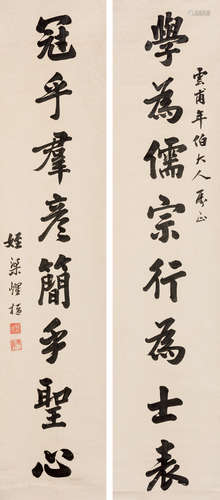 雲甫年伯大人屬正
學為儒宗行為士表
冠乎羣彥簡乎聖心
姪梁燿樞